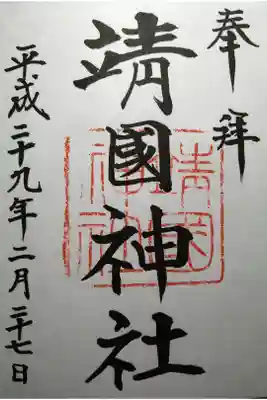 奉拝
靖國神社
平成二十九年二月二十七日
靖國神社